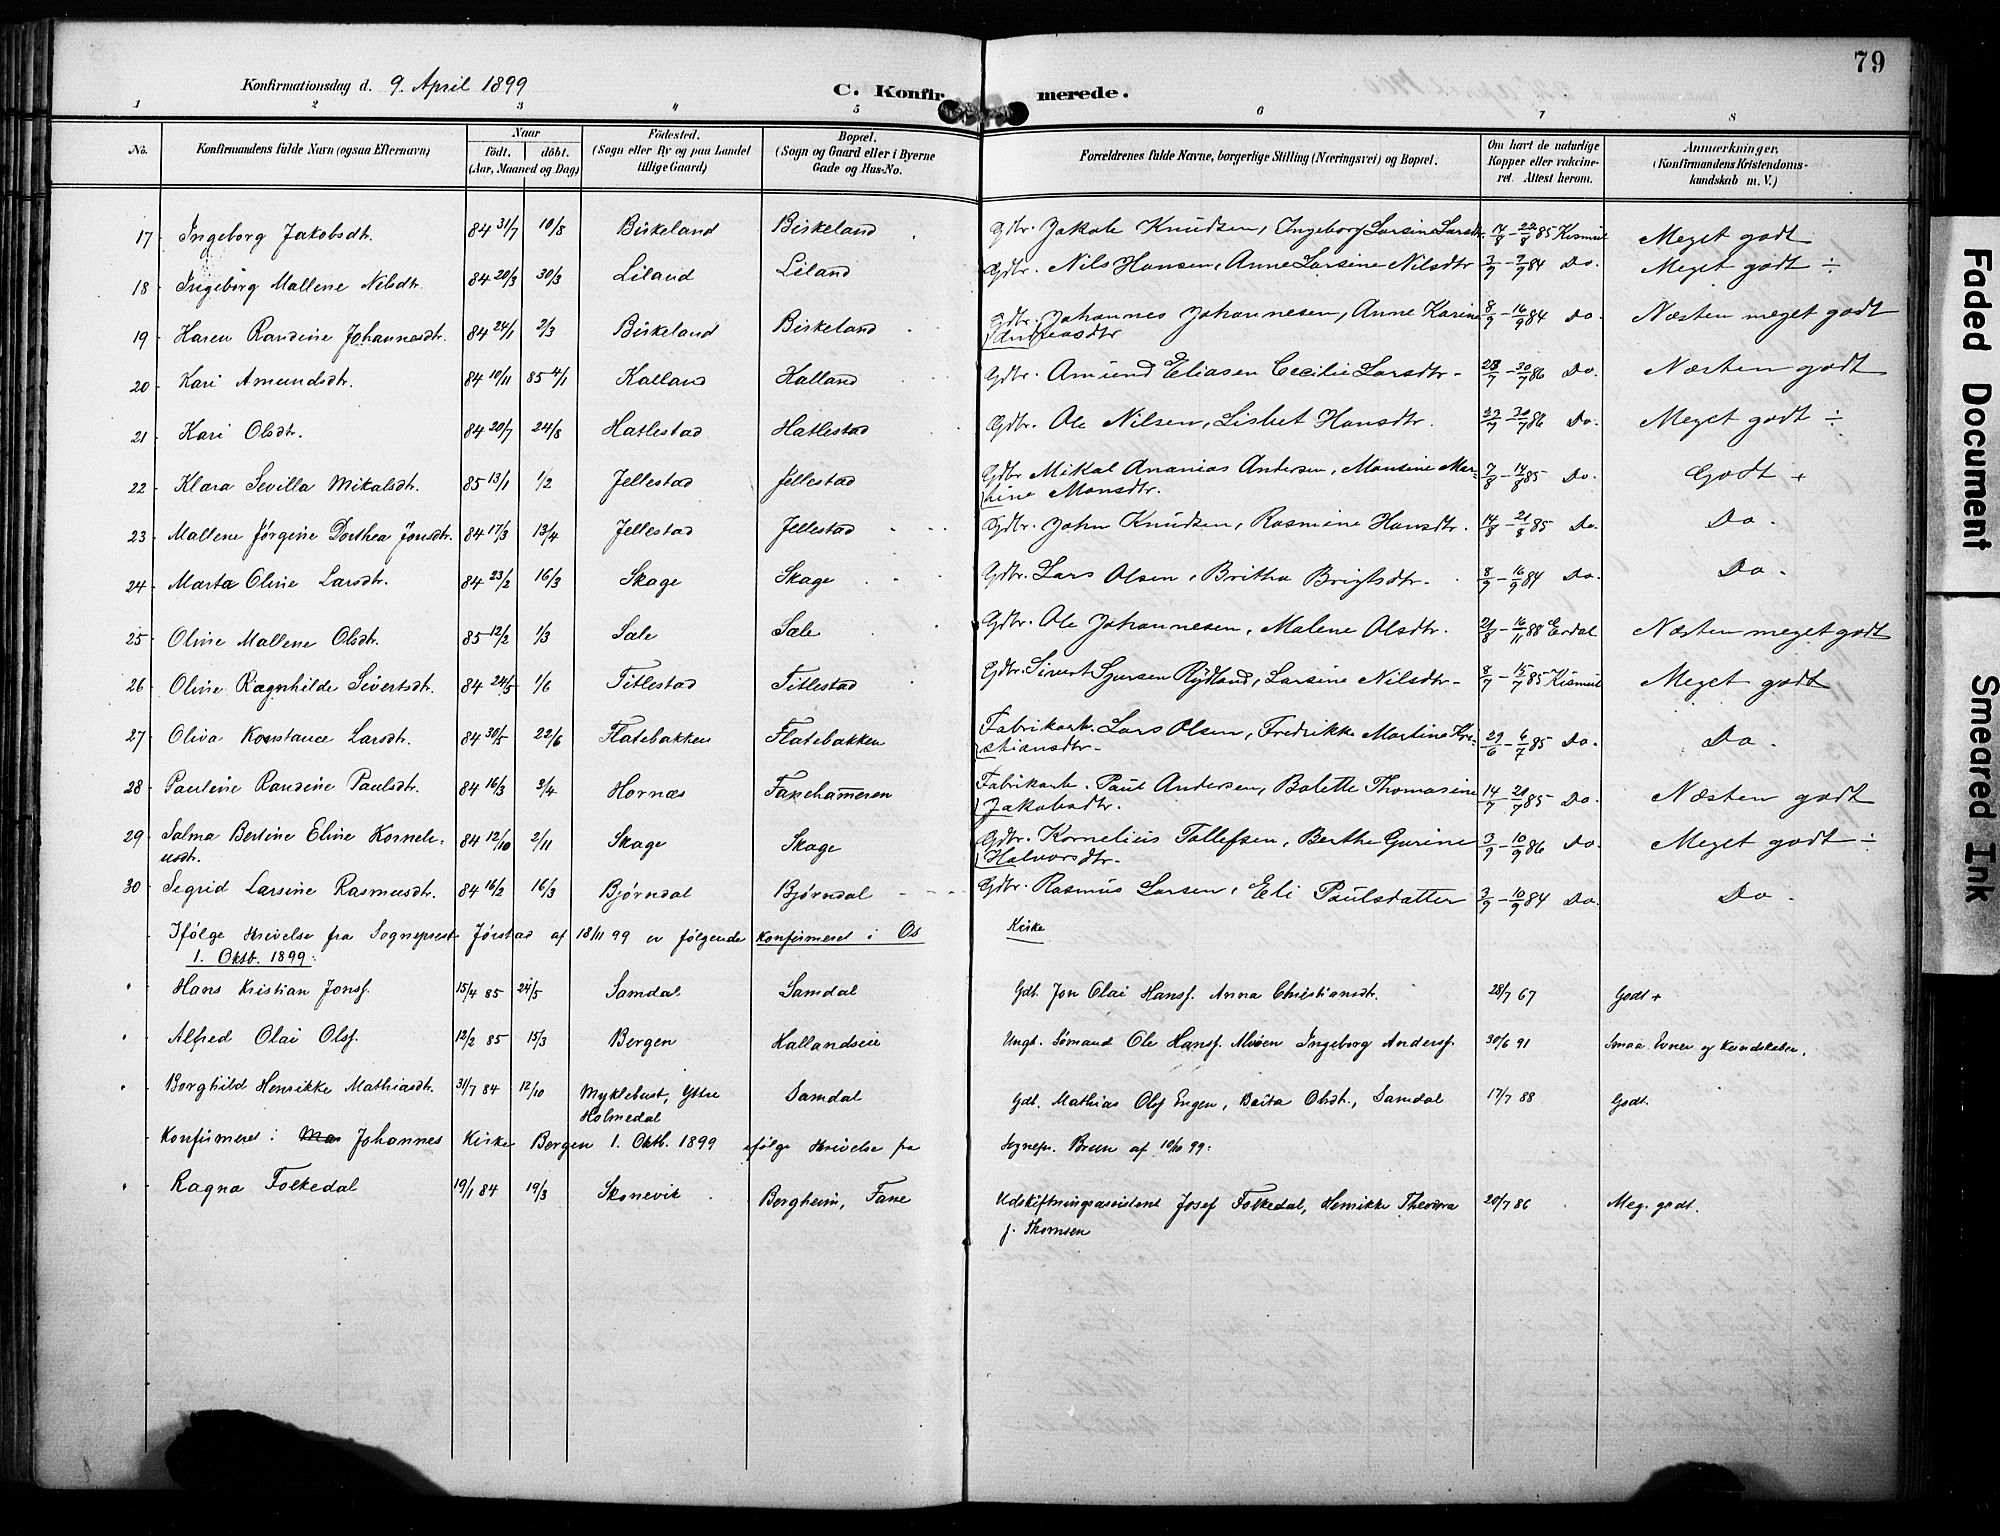 79
Konfirmationsdag d. 9. April 1899
C. Konfirmerede.
1 2 3 " 5 6 7 8
No. Konfirmandens fulde Navn (ogsaa Efternavn) Naar födt. döbt. (Aar, Maaned og Dag) Födested. (Sogn eller By og paa Landet tillige Gaard) Bopæl. (Sogn og Gaard eller i Byerne Gade og Hus-No. Forældrenes fulde Navne, borgerlige Stilling (Næringsvei) og Bopæl. Om havt de naturlige Kopper eller vakcineret. Attest herom. Anmærkninger, (Konfirmandens Kristendomskundskab m. V.)
17 Ingeborg Jakobsdtr. 84 31/7 10/8 Birkeland Birkeland Gdbr. Jakob Knudsen, Ingeborg Larsine Larsdtr. 14/8 - 22/8 85 Kismul Meget godt
18 Ingeborg Mallene Nilsdtr. 84 20/3 30/3 Liland Liland Gdbr. Nils Hansen, Anne Larsine Nilsdtr 3/9 - 9/9 84 Do. Meget godt ÷
19 Karen Randine Johannesdtr. 84 24/1 2/3 Birkeland Birkeland Gdbr. Johannes Johannesen, Anne Karine Andreasdtr 8/9 - 16/9 84 Do. Næsten meget godt
20 Kari Amundsdtr. 84 10/11 85 4/1 Kalland Halland Gdbr. Amund Eliasen Cecilie Larsdtr - 23/7 - 30/7 86 Do. Næsten godt
21 Kari Olsdtr. 84 20/7 24/8 Hatlestad Hatlestad Gdbr. Ole Nilsen, Lisbet Hansdtr. 23/7 - 30/7 86 Do. Meget godt ÷
22 Klara Sevilla Mikalsdtr. 85 13/1 1/2 Jellestad Jellestad Gdbr Mikal Ananias Andersen, Monsine Martine Monsdtr. 7/8 - 14/8 85 Do. Godt +
23 Mallene Jørgine Dorthea Jonsdtr. 84 17/3 13/4 Jellestad Jellestad Gdbr. John Knudsen, Rasmine Hansdtr. 14/8 - 21/8 85 Do. Do.
24 Marta Oline Larsdtr. 84 23/2 16/3 Skage Skage Gdbr. Lars Olsen, Britha Brigtsdtr. 8/9 - 16/9 84 Do. Do.
25 Oline Mallene Olsdtr. 85 12/2 1/3 Sæle Sæle Gdbr. Ole Johannesen, Malene Olsdtr. 21/8 - 16/11 88 Erdal Næsten meget godt
26 Oline Ragnhilde Sivertsdtr. 84 24/5 1/6 Titlestad Titlestad Gdbr. Sivert Sjursen Rydland, Larsine Nilsdtr - 8/7 - 15/7 85 Kismul Meget godt
27 Oliva Konstance Larsdtr. 84 30/5 22/6 Flatebakken Flatebakken Fabrikarb. Lars Olsen, Fredrikke Martine Kristiansdtr. 29/6 - 6/7 85 Do. Do.
28 Pauline Randine Paulsdtr. 84 16/3 3/4 Hornæs Fanehameren Fabrikarb. Paul Andersen, Bolette Thomasine Jakobsdtr. 14/7 - 21/7 85 Do. Næsten godt
29 Salma Bertine Eline Korneliusdtr. 84 12/10 2/11 Skage Skage Gdbr. Kornelius Tollefsen, Berthe Gurine Halvorsdtr. 3/9 - 10/9 86 Do. Meget godt ÷
30 Sigrid Larsine Rasmusdtr. 84 16/2 16/3 Bjørndal Bjørndal Gdbr. Rasmus Larsen, Eli Paulsdatter 3/9 - 10/9 84 Do. Do.
Ifølge skrivelse fra Sogneprest Jørstad af 18/11 99 er følgende konfirmeret i Os Kirke
1. Oktb. 1899:
" Hans Kristian Jonsf. 15/4 85 24/5 Samdal Samdal Gdb. Jon Olai Hansf. Anna Christiansdtr. 28/7 67 Godt +
" Alfred Olai Olsf. 12/2 85 15/3 Bergen Hallandseie Ungk. Sømand Ole Hansf. Alvøen Ingeborg Andersf. 30/6 91 Smaa Evner og Kundskaber.
" Borghild Henrikke Mathiasdtr. 31/7 84 12/10 Myklebust, Yttre Holmedal Samdal Gdb. Mathias Olsf Engen, Brita Olsdt., Samdal 17/7 88 Godt.
Konfirmeret i Johannes Kirke Bergen 1. Oktb. 1899 ifølge skrivelse fra Sognepr. Bruun af 10/10 99:
" Ragna Folkedal 19/1 84 19/3 Skonevik Borgheim, Fane Udskiftningsassistent Josef Folkedal, Henrikke Theodora f. Thomsen 20/7 86 Meg. godt.
Faded Document
Smeared Ink